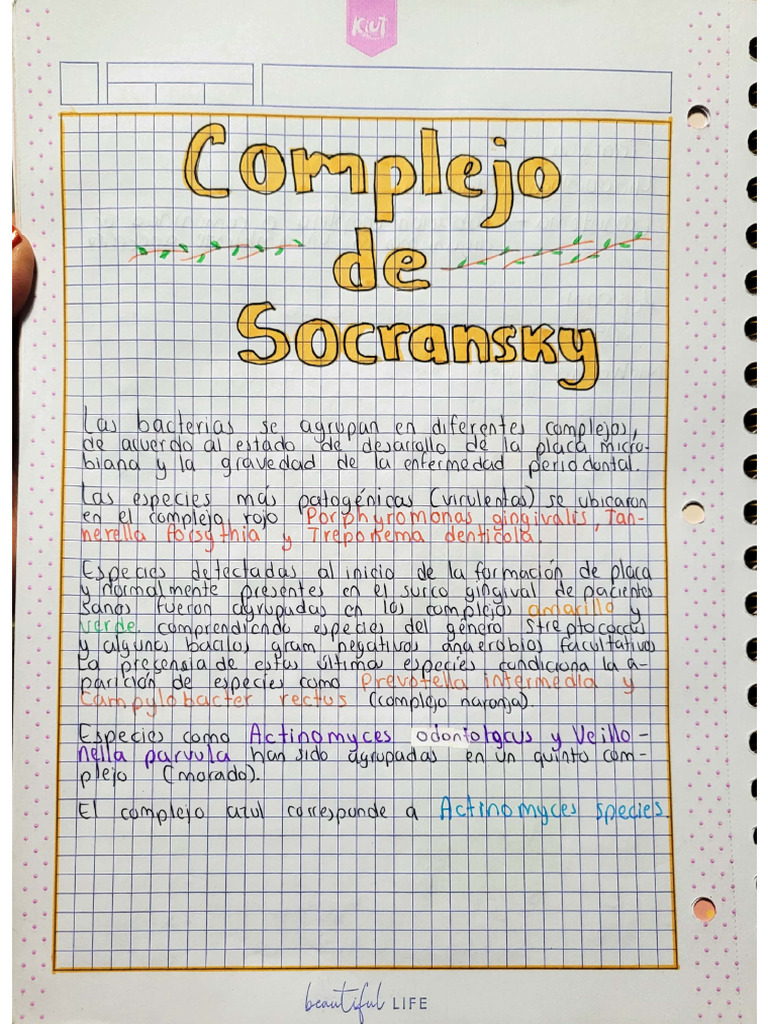 KIUT
Complejo
de
Socransky
Las bacterias se agrupan en diferentes complejos,
de acuerdo al estado de desarrallo de la placa micro-
biana y la gravedad de la enfermedad periodontal.
Las especies más patogénicas (virulentas) se ubicaron
en el complejo rojo Porphyromonas gingivalis, Tan-
nerella forsythia y Treponema denticola.
Especies detectadas al inicio de la formación de placa
y normalmente presentes en el surco gingival de pacientes
sanos fueron agrupadas en los complejos amarillo y
verde, comprendiendo especies del género streptococcus
y algunos bacilos gram negativos anaerobios facultativos
La presensia de estas última especies condiciona la a-
parición de especies como Prevotella intermedia y
Campylobacter rectus (complejo naranja).
Especies como Actinomyces odontolgcus y Veillo-
nella parvula han sido agrupadas en un quinto com-
plejo (morado).
El complejo azul corresponde a Actinomyces species.
beautiful LIFE